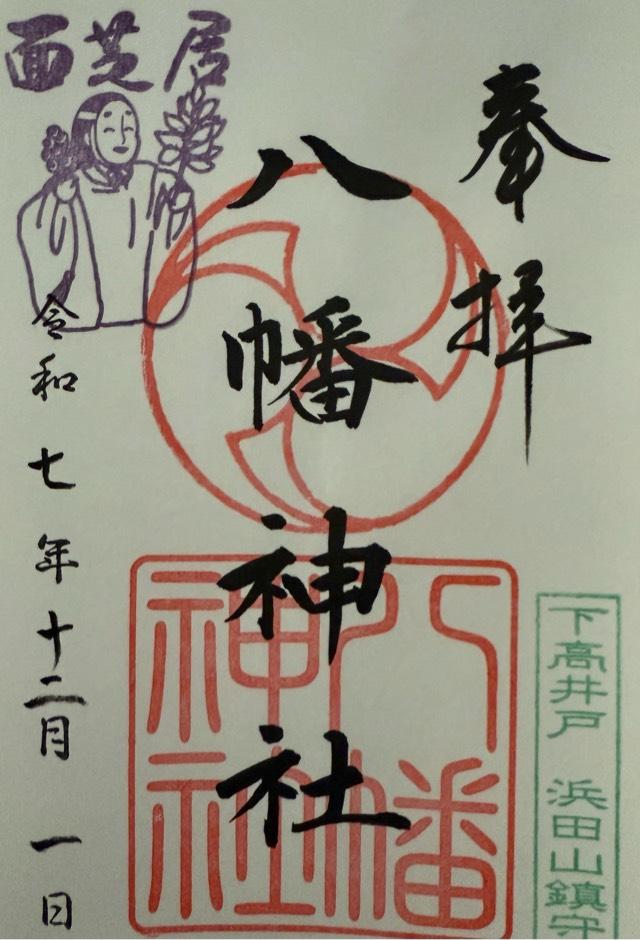 奉拝
八幡神社
八幡神社
下高井戸 浜田山鎮守
面芝居
令和七年十二月一日